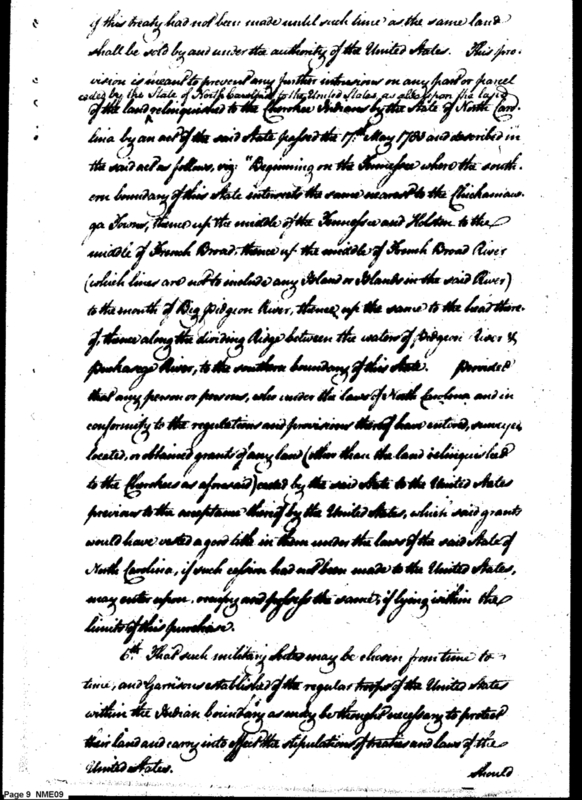 of this treaty had not been made until such time as the same land
shall be sold by and under the authority of the United States. This pro-
vision is meant to prevent any further intrusions on any part or parcel
ceded by the State of North Carolina to the United States, as also upon the land
of the land relinquished to the Cherokee Indians by the State of North Caro-
lina by an act of the said State passed the 17th May 1783 and described in
the said act as follows, viz: "Beginning on the Tennessee where the south-
ern boundary of this State intersects the same nearest to the Chickamaw-
ga Towns, thence up the middle of the Tennessee and Holston to the
middle of French Broad, thence up the middle of French Broad River
(which lines are not to include any Island or Islands in the said River)
to the mouth of Big Pidgeon River, thence up the same to the head there-
of, thence along the dividing Ridge between the waters of Pidgeon River &
River, to the southern boundary of this State. Provided
that any person or persons, who under the laws of North Carolina and in
conformity to the regulations and provisions thereof have entered, surveyed
located, or obtained grants of any land (other than the land relinquished
to the Cherokees as aforesaid) ceded by the said State to the United States
previous to the acceptance thereof by the United States, which said grants
would have vested a good title in them under the laws of the said State of
North Carolina, if such cession had not been made to the United States,
may enter upon, occupy and possess the same, if lying within the
limits of this purchase.
6th That such military may be chosen from time to
time, and Garrisons established of the regular troops of the United States
within the Indian boundary as may be thought necessary to protect
their land and carry into effect the stipulations of treaties and laws of the
United States.
Should
Page 9 NME09